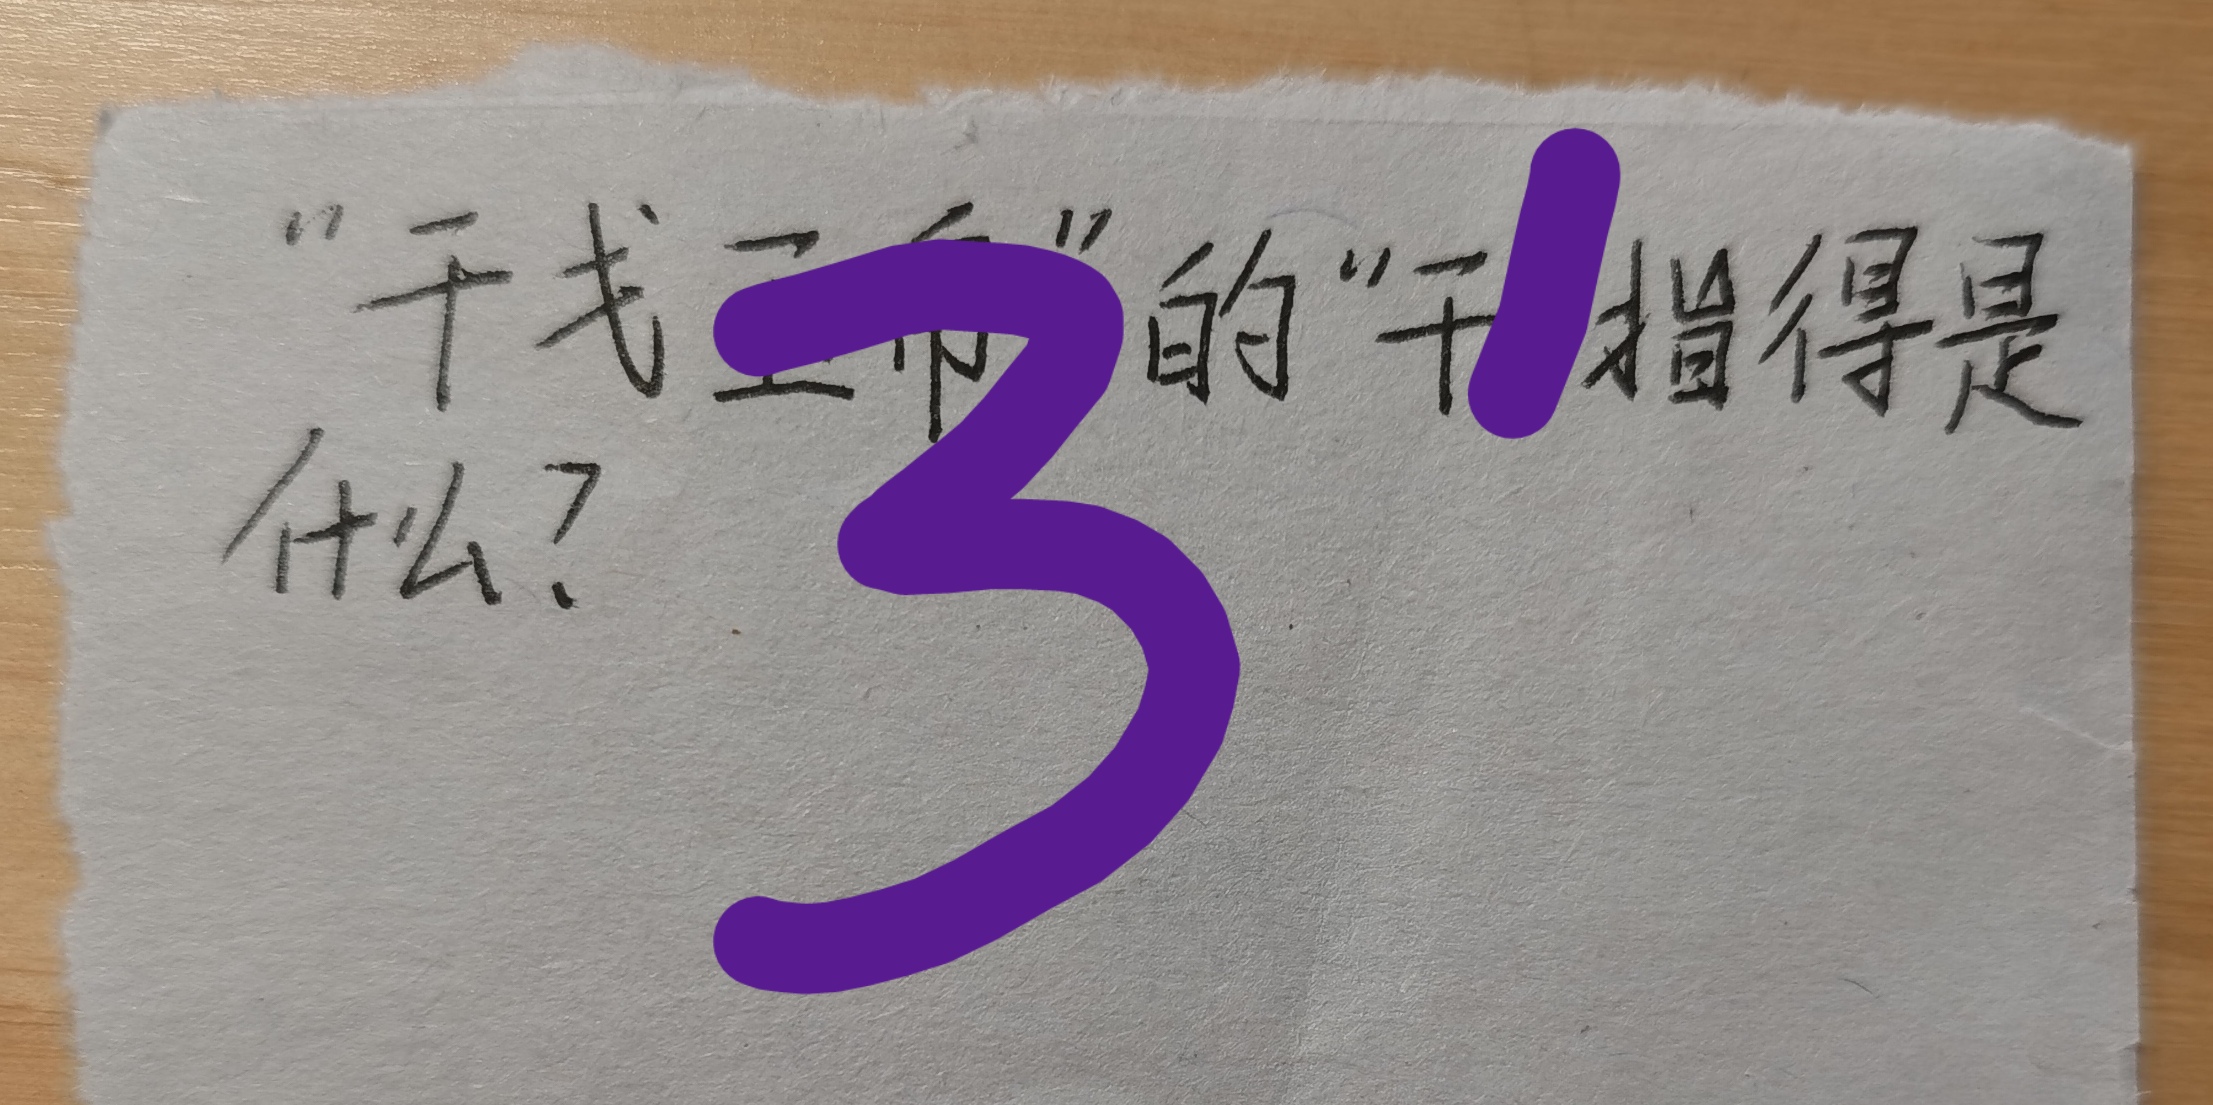 “干戈玉帛”的“干指得是
什么?